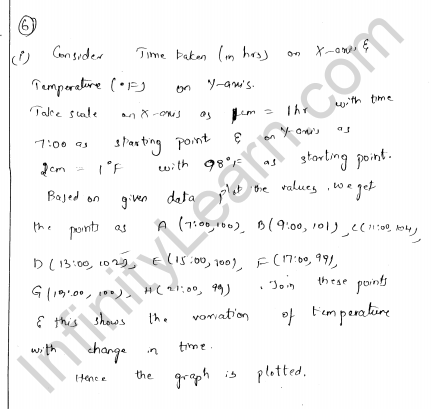 6)
(i) Consider Time taken (in hrs) on X-axis &
Temperature (°F) on Y-axis.
Take scale on X-axis as 1cm = 1hr with time
7:00 as starting point & on Y-axis as
2cm = 1°F with 98°F as starting point.
Based on given data plot the values, we get
the points as A (7:00, 100), B(9:00, 101), C(11:00, 104),
D (13:00, 102), E (15:00, 100), F (17:00, 99),
G (19:00, 100), H (21:00, 99). Join these points
& this shows the variation of temperature
with change in time.
Hence the graph is plotted.
InfinityLearn.com